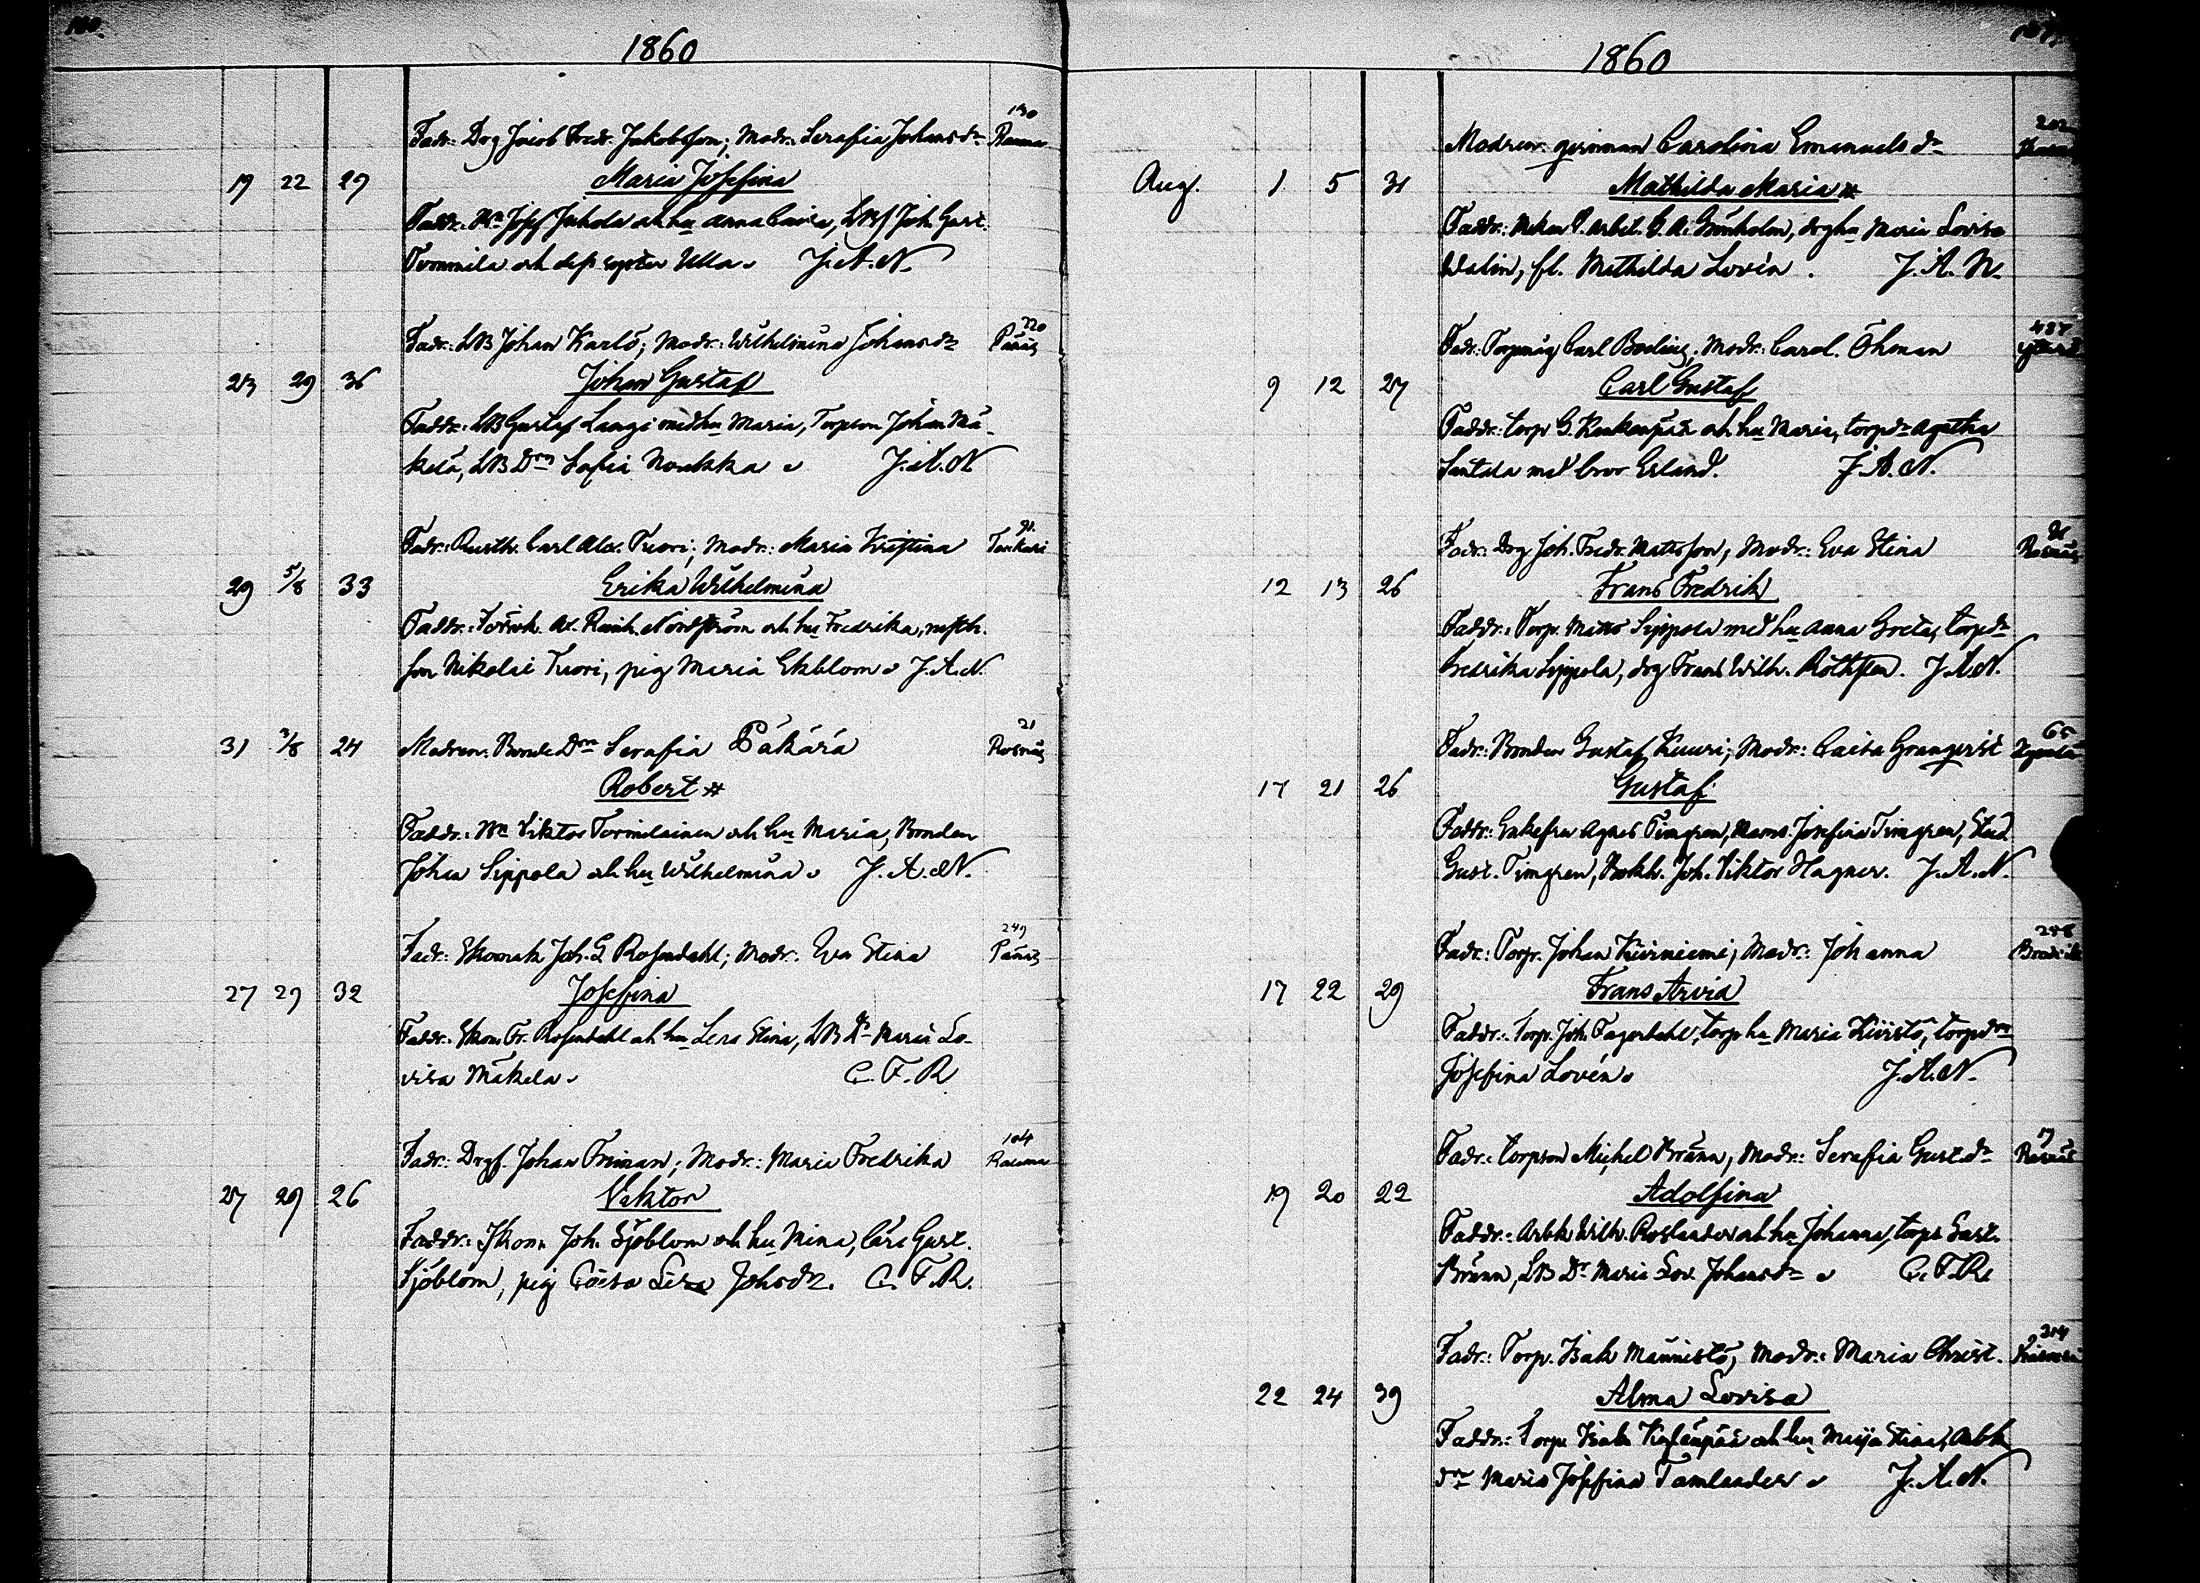 1860
Fadr: Drg Jacob Fredr. Jakobsson; Modr: Serafia Johansdr
130
Rauma
19 22 29 Maria Josefina
Faddr: Josef Juhola och hu Anna Caisa, Joh. Gust.
Tommila och dess syster Ulla. J. A. N.
Fadr: LB Johan Karlö; Modr: Wilhelmina Johansdr
220
23 29 36 Johan Gustaf
Faddr: LB Gustaf Laugi med hu Maria, Torpson Johan Mä-
kelä, LB Drn Sofia Noukka J. A. N.
Fadr: Rusth. Carl Alex. Tuori; Modr: Maria Kristina
91.
Tankari
29 5/8 33 Erika Wilhelmina
Faddr: Al. Reinh. Nordström och hu Fredrika, rusth.
son Nikolai Tuori, pig Maria Ekblom J. A. N.
31 3/8 24 Modren: Bonde Drn Serafia Päkärä
21
Rosnäs
Robert *
Faddr: Viktor Tornilainen och hu Maria, Bonden
Johan Sippola och hu Wilhelmina J. A. N.
Fadr: Joh. G Rosendahl; Modr: Eva Stina
249
27 29 32 Josefina
Faddr: Fr. Rosendahl och hu Lena Stina, LB Dr Maria Lo-
visa Mäkelä C. F. R
Fadr: Drg. Johan Friman; Modr: Maria Fredrika
104
Rauma
27 29 26 Viktor
Faddr: Joh. Sjöblom och hu Mina, Gust.
Sjöblom, pig Caisa Lisa Johsdr. C. F. R.
1860
Modren: qvinnan Carolina Emanuelsdr
202
Aug. 1 5 31 Mathilda Maria *
Faddr: arbet. G. A. Grönholm, drghu Maria Lovisa
Walin, fl. Mathilda Lovén. J. A. N.
Fadr: Carl Bodin; Modr: Carol. Öhman
9 12 27 Carl Gustaf
Faddr: torp G. Keukenpää och hu Maria, torpdr Agatha
Santala med bror Erland. J. A. N.
Fadr: Drg Joh. Fredr. Matsson; Modr: Eva Stina
Rosnäs
12 13 26 Frans Fredrik
Faddr: Torp. Matts Sippola med hu Anna Greta, torpdr
Fredrika Sippola, drg Frans Wilh. J. A. N.
Fadr: Bonden Gustaf Kuuri; Modr: Caisa Granqvist
65
17 21 26 Gustaf
Faddr: Enkefru Agnes Timgren, Mams. Josefina Timgren, Stud.
Gust. Timgren, Bokh. Joh. Viktor Hagner. J. A. N.
Fadr: Torp. Johan Kiviniemi; Modr: Johanna
248
17 22 29 Frans Arvid
Faddr: Torp. Joh. Fagerdahl, torp hu Maria Kivistö, torpdrn
Josefina Lovén J. A. N.
Fadr: torpson Michel Brunn; Modr: Serafia Gust.dr
17
19 20 22 Adolfina
Faddr: Arbk Wilh. Roslander och hu Johanna, torps Gust.
Brunn, LB Dr Maria Lov. Johansdr C. F. R.
Fadr: Torp. Isak Männistö; Modr: Maria Christ.
314
22 24 39 Alma Lovisa
Faddr: Torp. Isak och hu Maija Stina, Arbk
drn Maria Josefina Tamlander J. A. N.